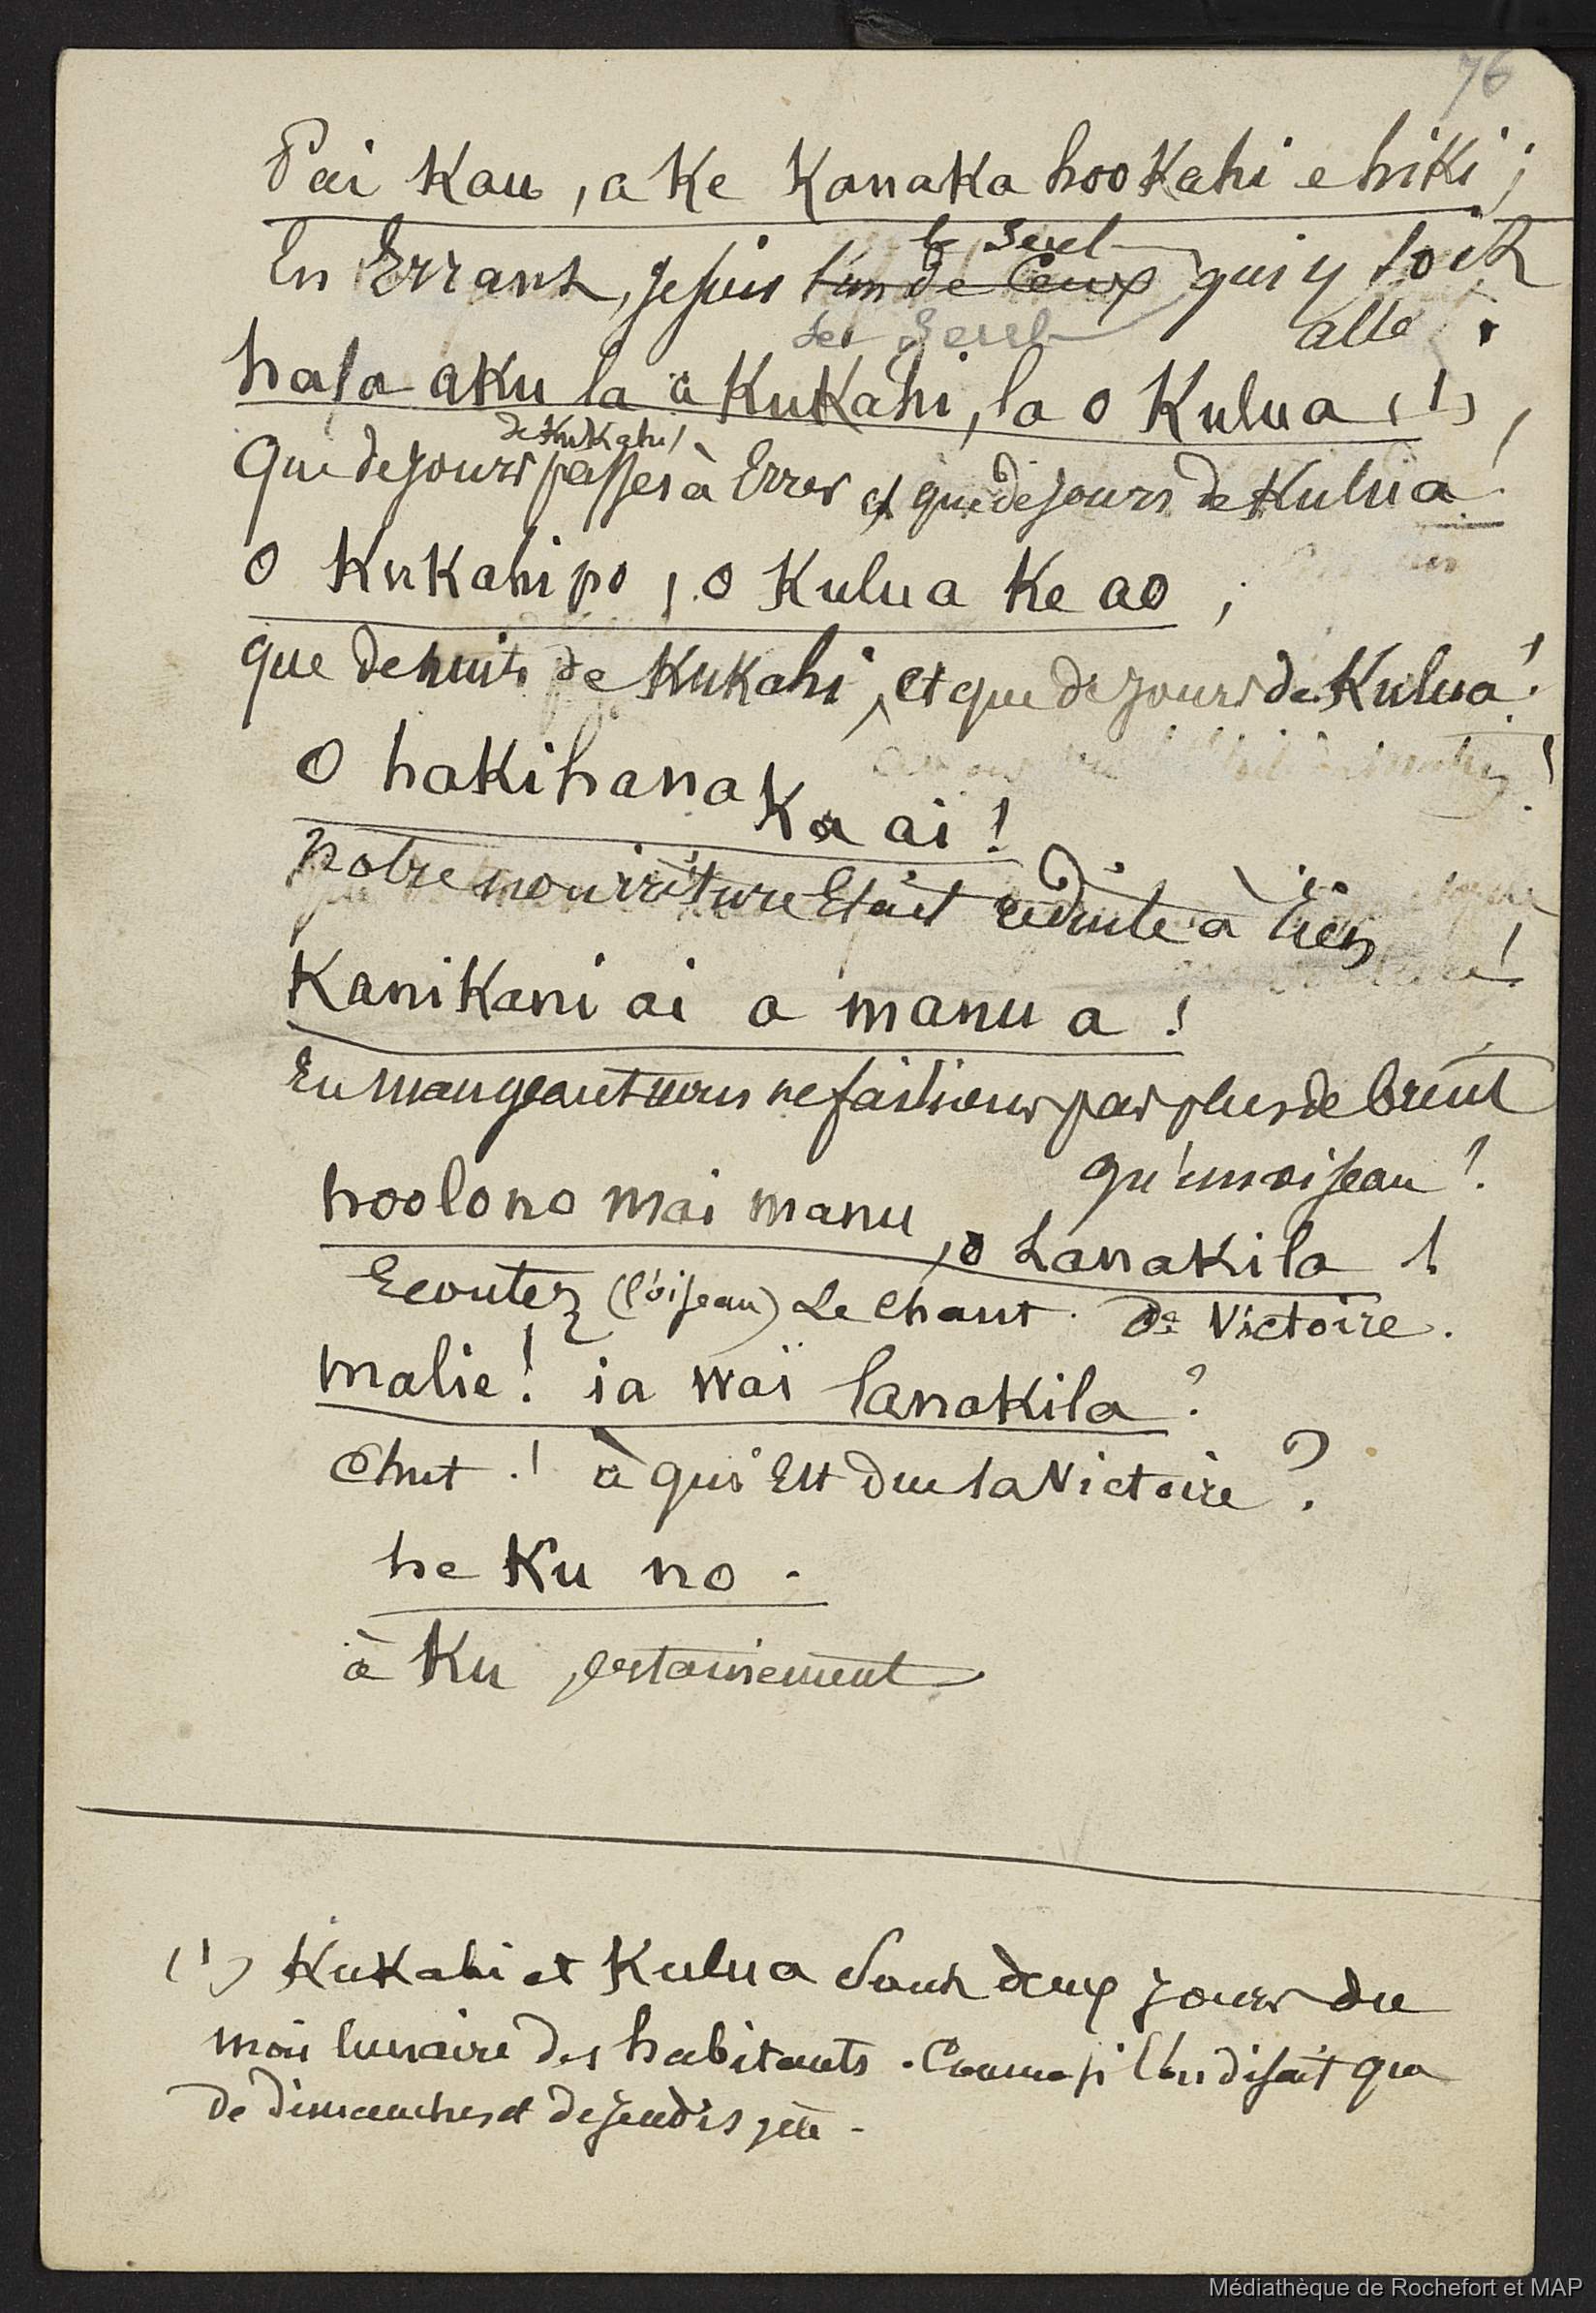 76
Pai Kau, a Ke Kanaka hooKahi e hiKi;
le Seul
En Errant, je suis l'un de Ceux qui y soit
Le Seul
allé.
hala aKu la a KuKahi, la o Kulua (1),
de KuKahi
Que de jours passés à Errer et que de jours de Kulua!
O KuKahi po, o Kulua Ke ao;
que de nuits de KuKahi, et que de jours de Kulua!
O haKihana Ka ai!
notre nourriture Etait réduite à rien
KaniKani ai a manu a!
En mangeant nous ne faisions pas plus de bruit
qu'un oiseau!
hoolono mai manu, o LanaKila!
Ecoutez (l'oiseau) Le Chant de Victoire.
malie! ia waï lanaKila?
Chut! à qui Est due la Victoire?
he Ku no.
à Ku certainement
(1) KuKahi et Kulua Sont deux jours du
mois lunaire des habitants. Comme si l'on disait que
de dimanches et de jeudis
Médiathèque de Rochefort et MAP